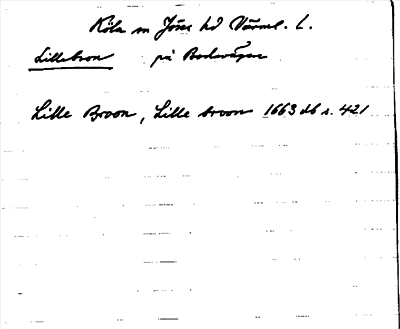 Köla sn Jösse hd Värml. L.
Lillebron på Bodwägen
Lille Broon, Lille broon 1663 db s. 421